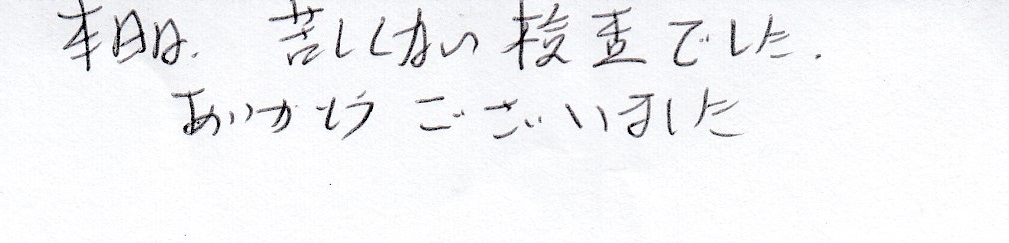 本日は、苦しくない検査でした。
ありがとうございました